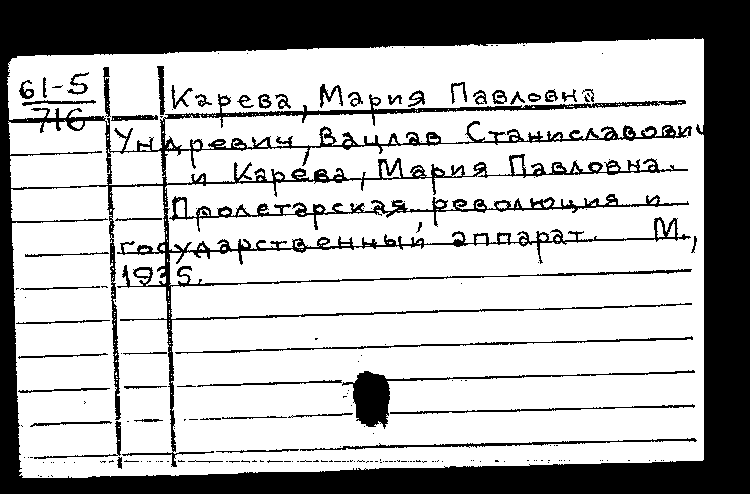 61-5
716
Карева, Мария Павловна
Ундревич, Вацлав Станиславович
и Карева, Мария Павловна.
Пролетарская революция и
государственный аппарат. М.,
1935.